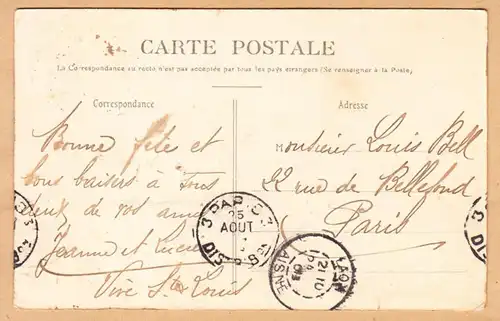 CARTE POSTALE
La Correspondance au recto n'est pas acceptée par tous les pays étrangers (Se renseigner à la Poste)
Correspondance
Adresse
Bonne fête et
bons baisers à tous
deux de vos amis
Jeanne et Lucien
Vive St Louis
Monsieur Louis Bell
22 rue de Bellefond
Paris
3 PARIS 3
25
AOUT
DISTB ON
LAON
AISNE
12/10
24